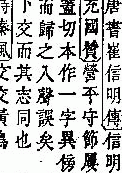 唐書崔信明傳信明
充國贊營平守節屢
蓋切本作一字異傍
而歸之入聲誤矣
下交而其志同也
詩秦風交交黃鳥